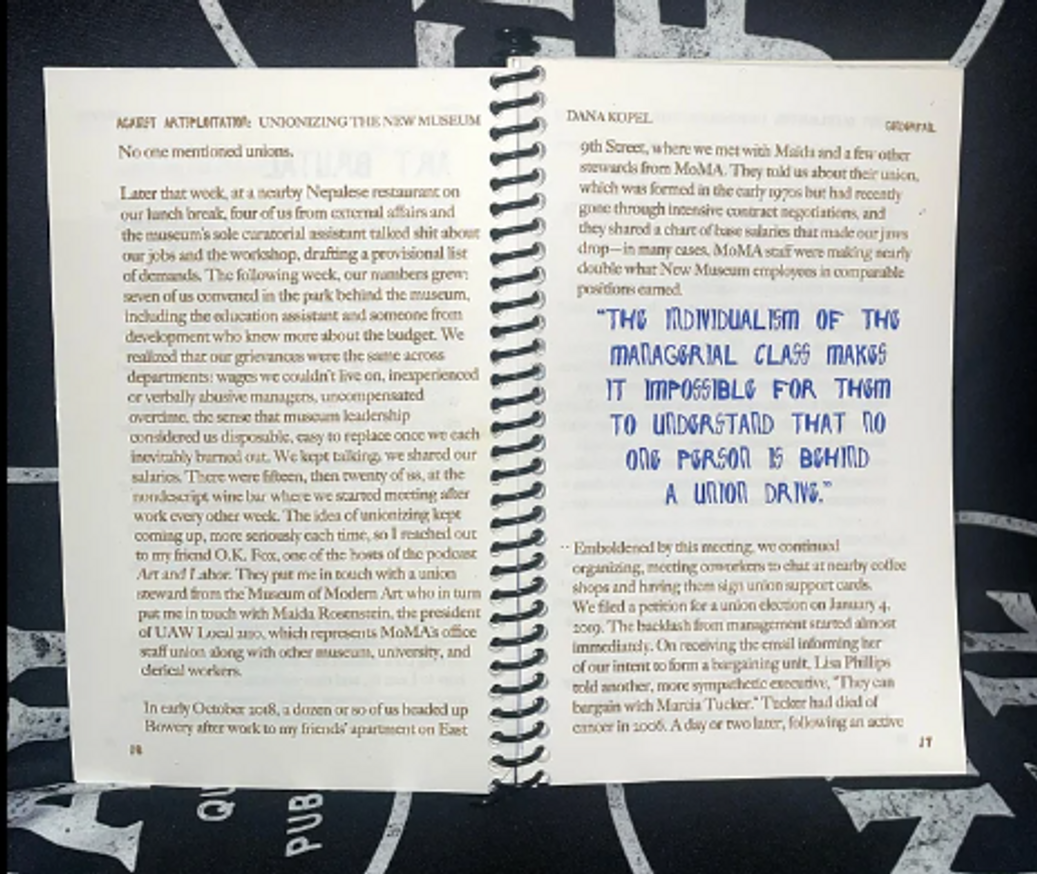 AGAINST ARTPLOITATION: UNIONIZING THE NEW MUSEUM
No one mentioned unions.
Later that week, at a nearby Nepalese restaurant on
our lunch break, four of us from external affairs and
the museum's sole curatorial assistant talked shit about
our jobs and the workshop, drafting a provisional list
of demands. The following week, our numbers grew:
seven of us convened in the park behind the museum,
including the education assistant and someone from
development who knew more about the budget. We
realized that our grievances were the same across
departments: wages we couldn't live on, inexperienced
or verbally abusive managers, uncompensated
overtime, the sense that museum leadership
considered us disposable, easy to replace once we each
inevitably burned out. We kept talking, we shared our
salaries. There were fifteen, then twenty of us, at the
nondescript wine bar where we started meeting after
work every other week. The idea of unionizing kept
coming up, more seriously each time, so I reached out
to my friend O.K. Fox, one of the hosts of the podcast
Art and Labor. They put me in touch with a union
steward from the Museum of Modern Art who in turn
put me in touch with Maida Rosenstein, the president
of UAW Local 2110, which represents MoMA's office
staff union along with other museum, university, and
clerical workers.
In early October 2018, a dozen or so of us headed up
Bowery after work to my friends' apartment on East
DANA KOPEL
9th Street, where we met with Maida and a few other
stewards from MoMA. They told us about their union,
which was formed in the early 1970s but had recently
gone through intensive contract negotiations, and
they shared a chart of base salaries that made our jaws
drop—in many cases, MoMA staff were making nearly
double what New Museum employees in comparable
positions earned.
"THE INDIVIDUALISM OF THE
MANAGERIAL CLASS MAKES
IT IMPOSSIBLE FOR THEM
TO UNDERSTAND THAT NO
ONE PERSON IS BEHIND
A UNION DRIVE."
Emboldened by this meeting, we continued
organizing, meeting coworkers to chat at nearby coffee
shops and having them sign union support cards.
We filed a petition for a union election on January 4,
2019. The backlash from management started almost
immediately. On receiving the email informing her
of our intent to form a bargaining unit, Lisa Phillips
told another, more sympathetic executive, "They can
bargain with Marcia Tucker." Tucker had died of
cancer in 2006. A day or two later, following an active
17
QU
PUB